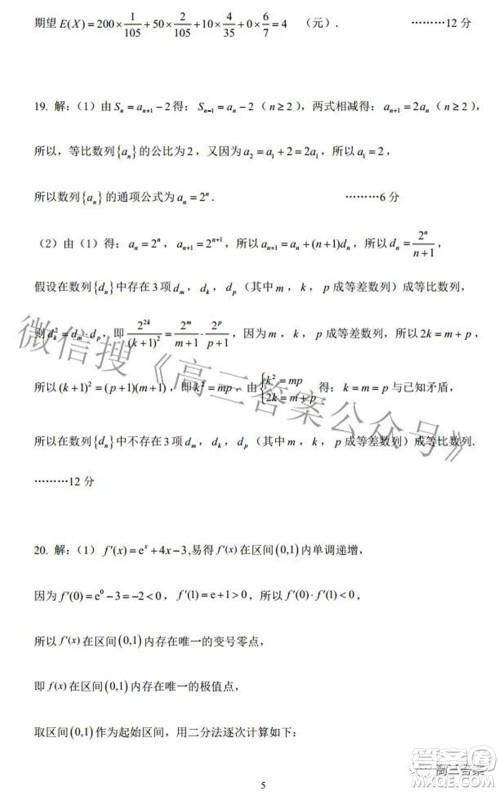 期望 E(X)=200×1/105+50×2/105+10×4/35+0×6/7=4 （元）. ………12 分
19. 解：（1）由 Sₙ=aₙ₊₁−2 得：Sₙ₋₁=aₙ−2（n≥2），两式相减得：aₙ₊₁=2aₙ（n≥2），
所以，等比数列{aₙ}的公比为 2，又因为 a₂=a₁+2=2a₁，所以 a₁=2，
所以数列{aₙ}的通项公式为 aₙ=2ⁿ. ………6 分
（2）由（1）得：aₙ=2ⁿ，aₙ₊₁=2ⁿ⁺¹，所以 aₙ₊₁=aₙ+(n+1)dₙ，所以 dₙ=2ⁿ/(n+1)，
假设在数列{dₙ}中存在 3 项 dₘ，dₖ，dₚ（其中 m，k，p 成等差数列）成等比数列，
则 dₖ²=dₘ·dₚ，即 2²ᵏ/(k+1)²=2ᵐ/(m+1)·2ᵖ/(p+1)，因为 m，k，p 成等差数列，所以 2k=m+p，
所以 (k+1)²=(p+1)(m+1)，即 k²=mp，由{k²=mp 2k=m+p 得：k=m=p 与已知矛盾，
所以在数列{dₙ}中不存在 3 项 dₘ，dₖ，dₚ（其中 m，k，p 成等差数列）成等比数列.
………12 分
20. 解：（1） f′(x)=eˣ+4x−3,易得 f′(x) 在区间(0,1)内单调递增，
因为 f′(0)=e⁰−3=−2<0，f′(1)=e+1>0，所以 f′(0)·f′(1)<0，
所以 f′(x) 在区间(0,1)内存在唯一的变号零点，
即 f(x) 在区间(0,1)内存在唯一的极值点，
取区间(0,1)作为起始区间，用二分法逐次计算如下：
5
微信搜《高三答案公众号》
高三答案